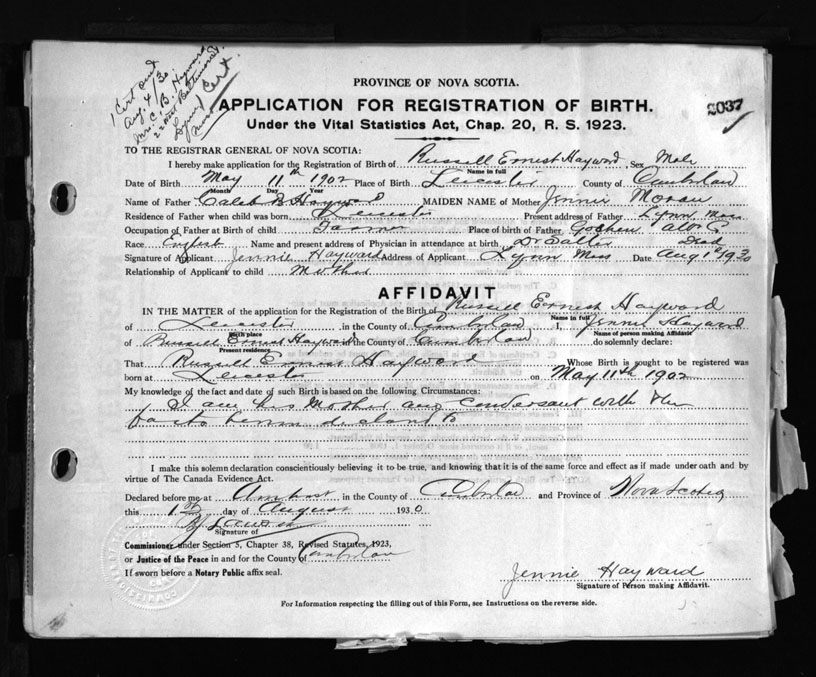 1 Cert and
Aug. 4/30
Mrs. C. B. Hayward
22 West Baltimore St.
Lynn Cert
Mass
PROVINCE OF NOVA SCOTIA.
APPLICATION FOR REGISTRATION OF BIRTH. 2037
Under the Vital Statistics Act, Chap. 20, R. S. 1923.
TO THE REGISTRAR GENERAL OF NOVA SCOTIA:
I hereby make application for the Registration of Birth of Russell Ernest Hayward, Sex Male
Name in full
Date of Birth May 11th 1902 Place of Birth Leicester County of Cumberland
Month Day Year
Name of Father Caleb B Hayward MAIDEN NAME of Mother Jennie Moran
Residence of Father when child was born Leicester Present address of Father Lynn Mass
Occupation of Father at Birth of child Farmer Place of birth of Father Goshen Albt Co
Race English Name and present address of Physician in attendance at birth Dr Dallas Dead
Signature of Applicant Jennie Hayward Address of Applicant Lynn Mass Date Aug 1st 1930
Relationship of Applicant to child Mother
AFFIDAVIT
IN THE MATTER of the application for the Registration of the Birth of Russell Earnest Hayward
Name in full
of Leicester in the County of Cumberland, I, Jennie Hayward
Birth place Name of person making Affidavit
of Russell Ernest Hayward the County of Cumberland do solemnly declare:
Present residence
That Russell Ernest Hayward Whose Birth is sought to be registered was
born at Leicester on May 11th 1902
My knowledge of the fact and date of such Birth is based on the following Circumstances:
I am his Mother and Conversant with the
facts herein declared to
I make this solemn declaration conscientiously believing it to be true, and knowing that it is of the same force and effect as if made under oath and by
virtue of The Canada Evidence Act.
Declared before me at Amherst in the County of Cumberland and Province of Nova Scotia
this 1st day of August 1930
Signature of
Commissioner under Section 5, Chapter 38, Revised Statutes, 1923,
or Justice of the Peace in and for the County of Cumberland
If sworn before a Notary Public affix seal.
Jennie Hayward
Signature of Person making Affidavit.
For Information respecting the filling out of this Form, see Instructions on the reverse side.